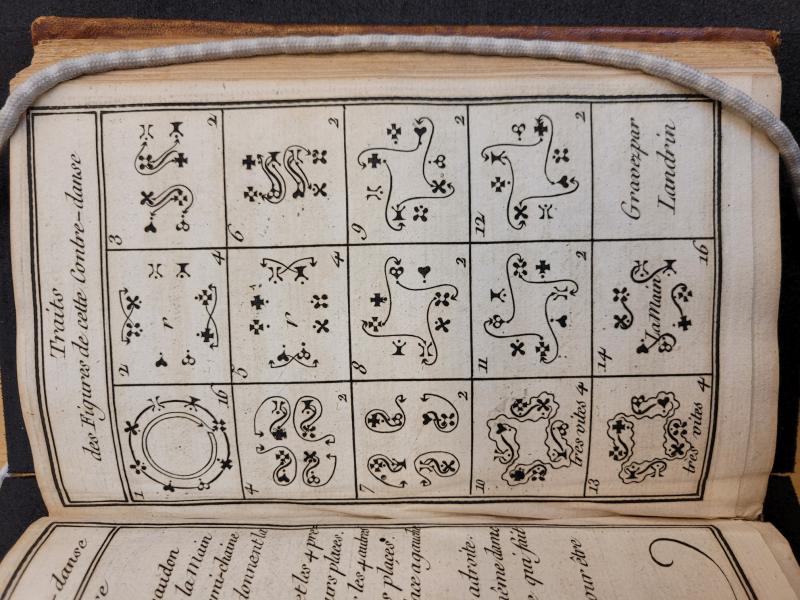 -danse
re
audon
la Main
mi-chaine
donnent la
et les 4 pre
urs places.
les 4 autres
s places.
ce a gauche
adroite.
ême danc
e qui fait
our être
Traits
des Figures de cette Contre-danse
1 16
2 r 4
3 2
4 2
5 r 4
6 2
7 2
8 2
9 2
10 tres vites 4
11 2
12 2
13 tres vites 4
14 La Main 16
Gravez par
Landrin